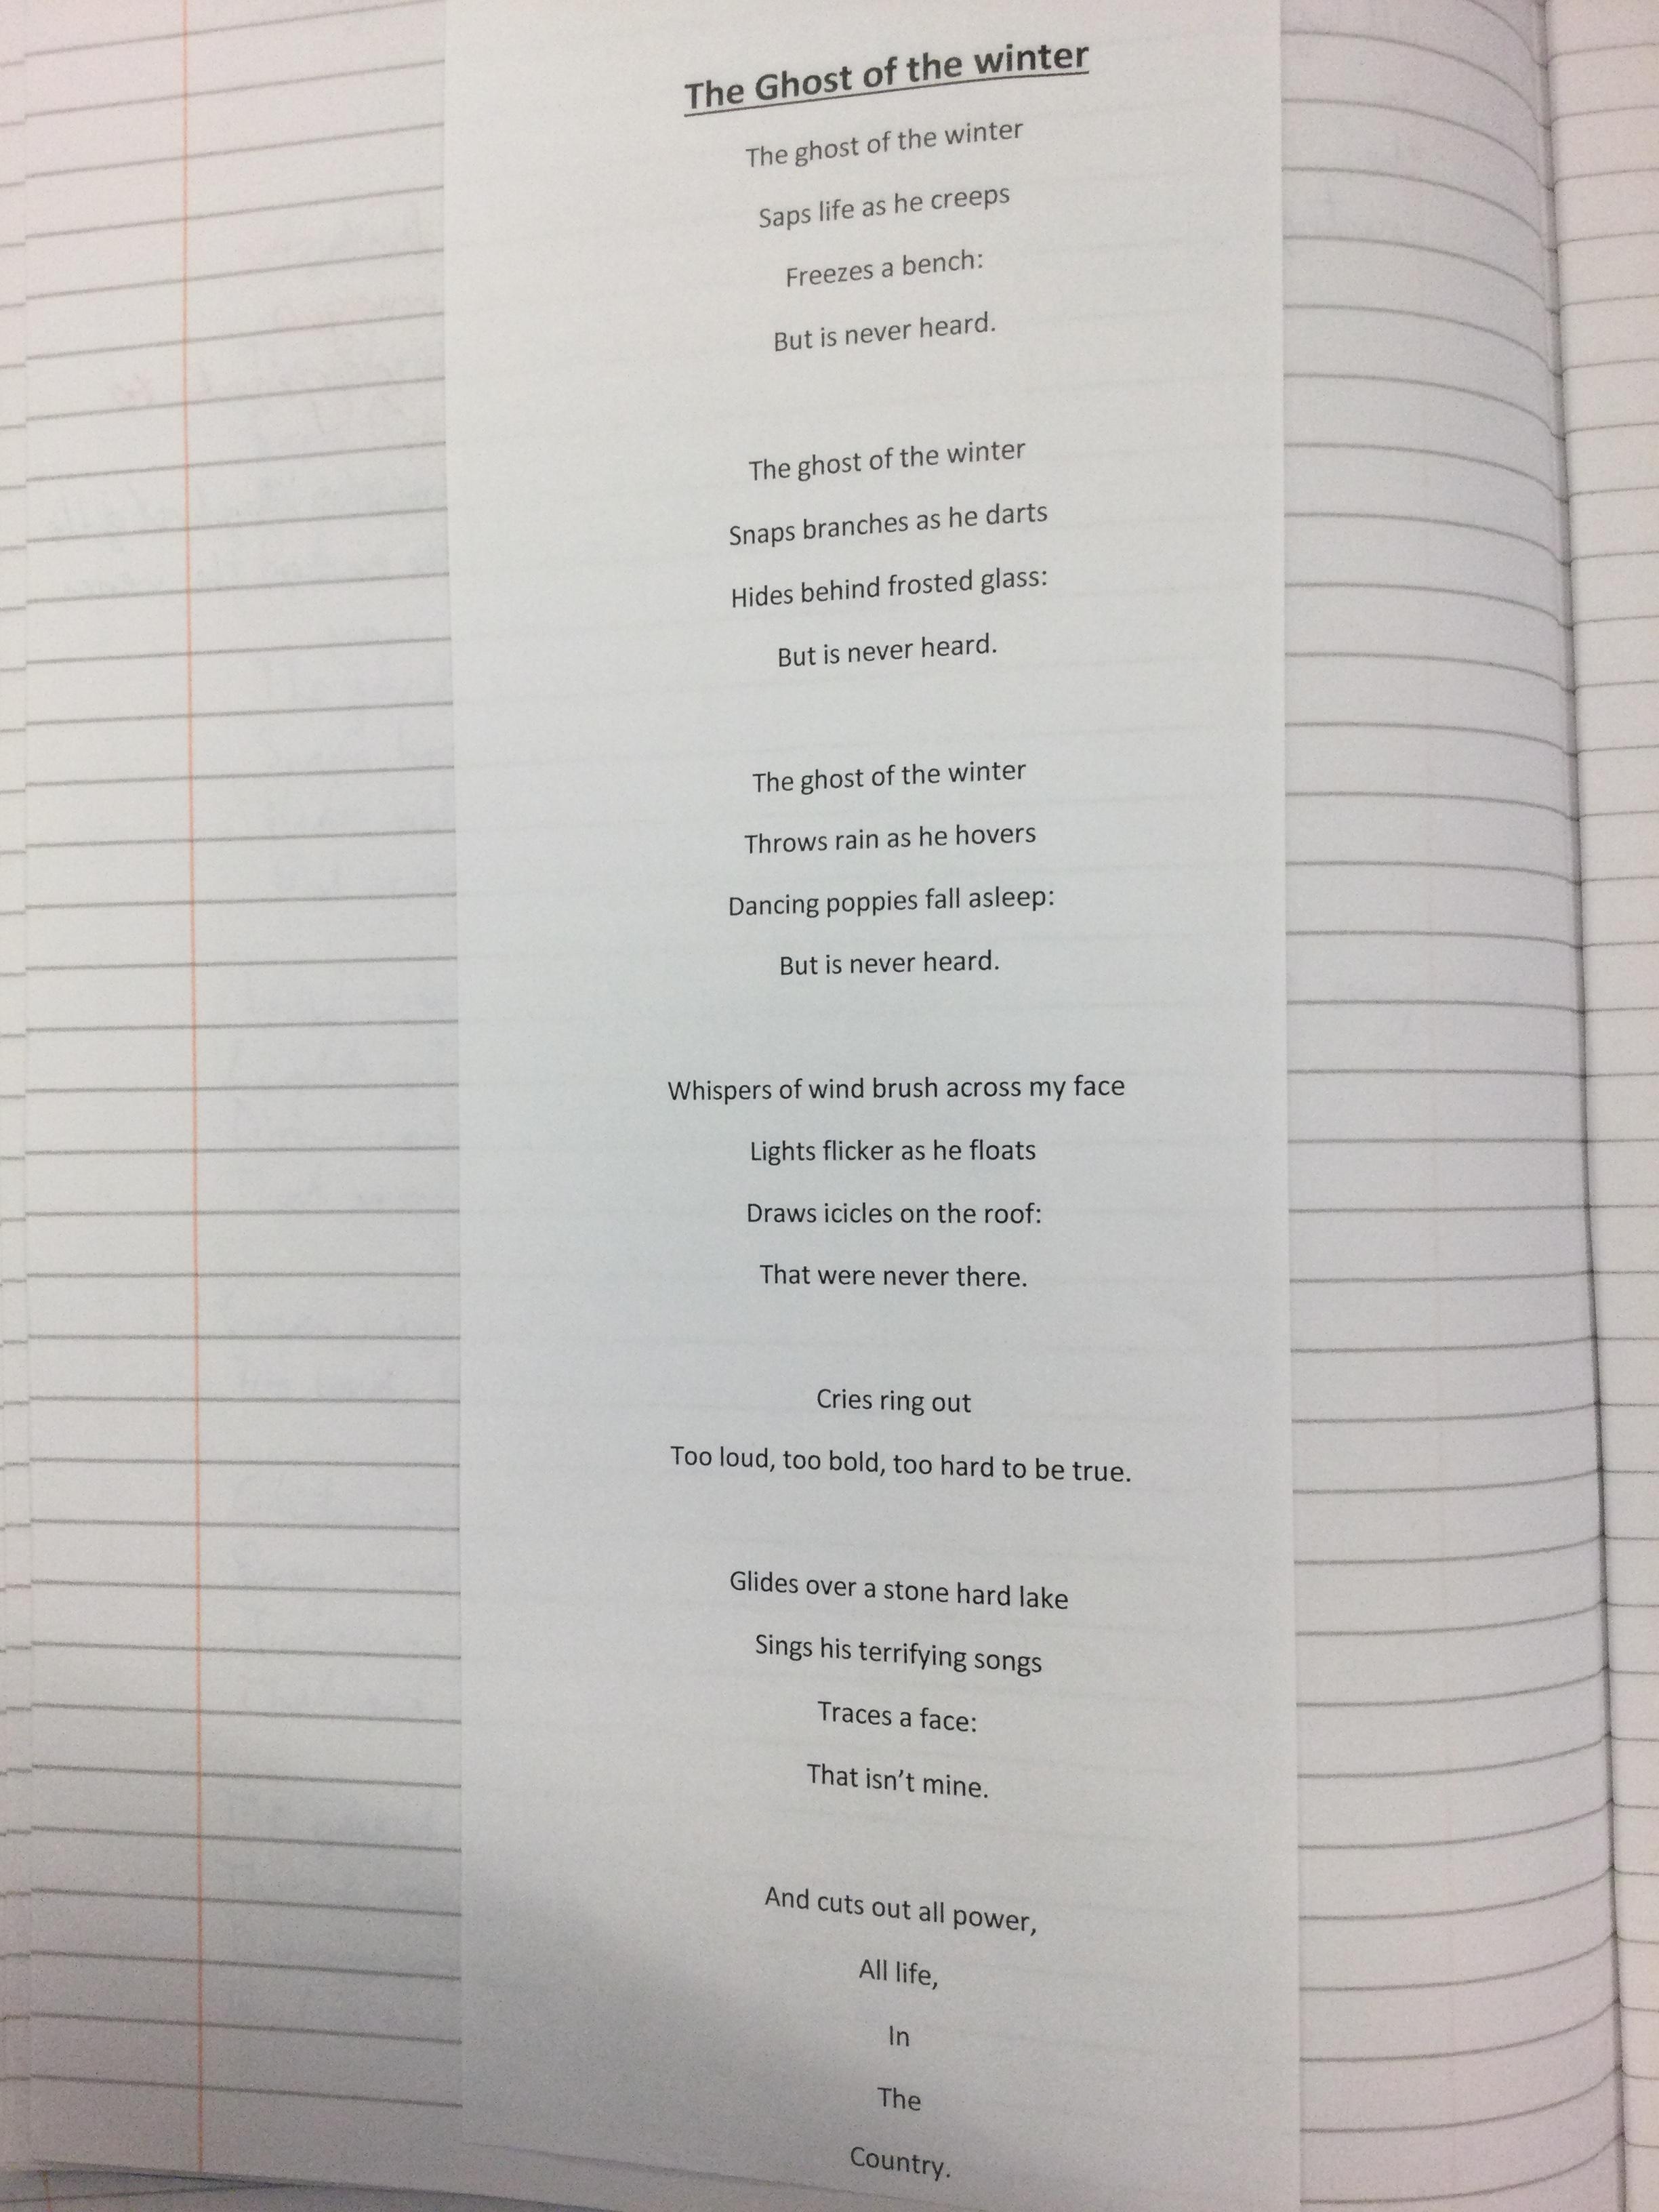 The Ghost of the winter
The ghost of the winter
Saps life as he creeps
Freezes a bench:
But is never heard.
The ghost of the winter
Snaps branches as he darts
Hides behind frosted glass:
But is never heard.
The ghost of the winter
Throws rain as he hovers
Dancing poppies fall asleep:
But is never heard.
Whispers of wind brush across my face
Lights flicker as he floats
Draws icicles on the roof:
That were never there.
Cries ring out
Too loud, too bold, too hard to be true.
Glides over a stone hard lake
Sings his terrifying songs
Traces a face:
That isn’t mine.
And cuts out all power,
All life,
In
The
Country.